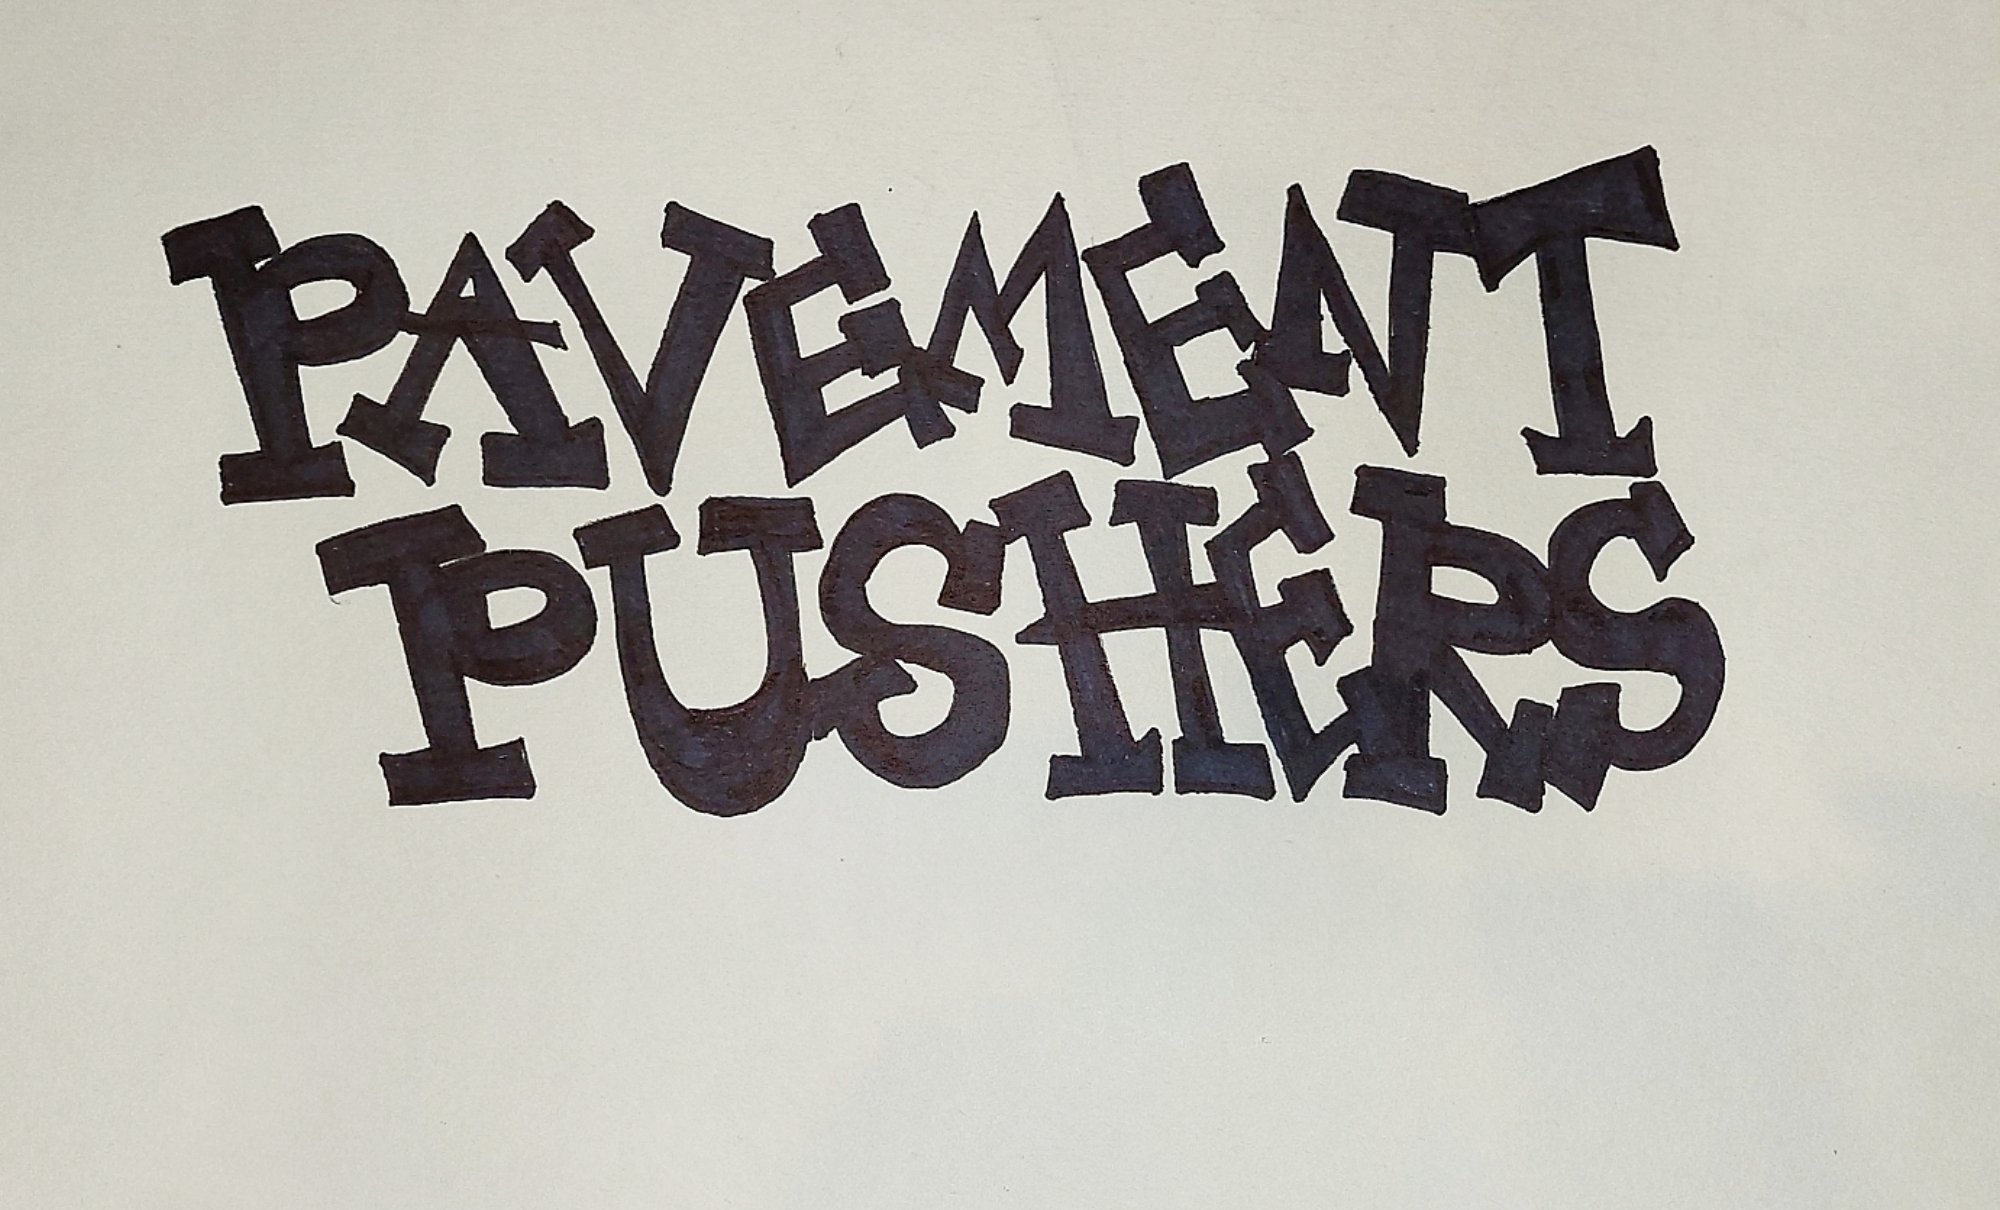 PAVEMENT
PUSHERS